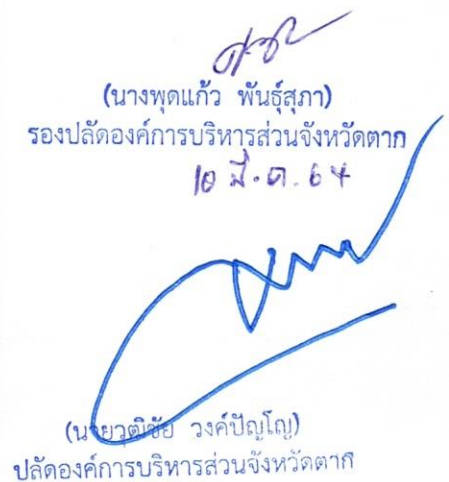 (นางพุดแก้ว พันธุ์สุภา)
รองปลัดองค์การบริหารส่วนจังหวัดตาก
10 มี.ค. 64
(นายวุฒิชัย วงค์ปัญโญ)
ปลัดองค์การบริหารส่วนจังหวัดตาก